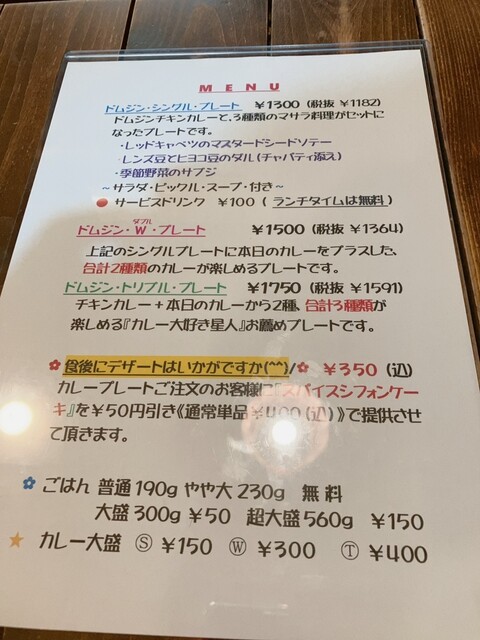 MENU
ドムジン・シングル・プレート ¥1300 (税抜 ¥1182)
ドムジンチキンカレーと、3種類のマサラ料理がセットに
なったプレートです。
・レッドキャベツのマスタードシードソテー
・レンズ豆とヒヨコ豆のダル(チャパティ添え)
・季節野菜のサブジ
～サラダ・ピックル・スープ・付き～
サービスドリンク ¥100 ( ランチタイムは無料 )
ダブル
ドムジン・W・プレート ¥1500 (税抜 ¥1364)
上記のシングルプレートに本日のカレーをプラスした、
合計2種類のカレーが楽しめるプレートです。
ドムジン・トリプル・プレート ¥1750 (税抜 ¥1591)
チキンカレー+本日のカレーから2種、合計3種類が
楽しめる『カレー大好き星人』お薦めプレートです。
✿食後にデザートはいかがですか(^^)/✿ ¥350 (込)
カレープレートご注文のお客様に『スパイスシフォンケー
キ』を¥50円引き《通常単品¥400(込)》で提供させ
て頂きます。
✿ ごはん 普通190g やや大230g 無料
大盛300g ¥50 超大盛560g ¥150
★ カレー大盛 Ⓢ ¥150 Ⓦ ¥300 Ⓣ ¥400